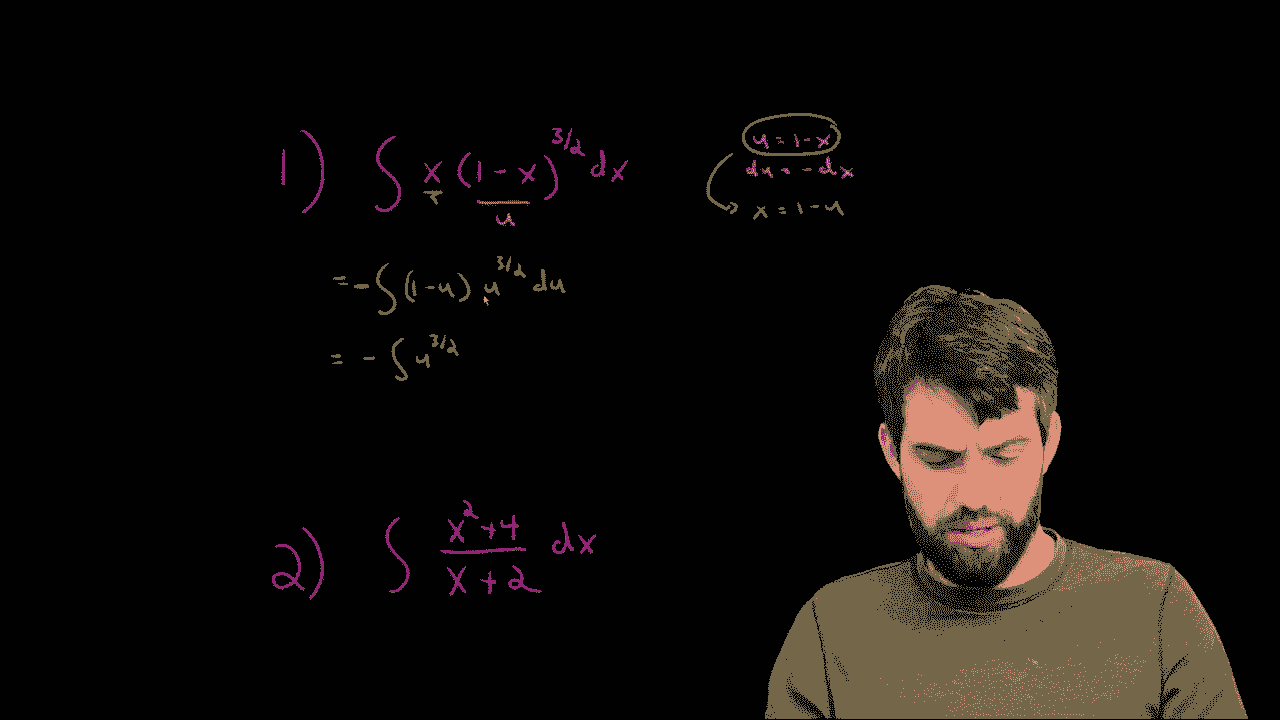 1) ∫ x (1 - x)^{3/2} dx
u
u = 1 - x
du = - dx
x = 1 - u
= - ∫ (1 - u) u^{3/2} du
= - ∫ u^{3/2}
2) ∫ \frac{x^2 + 4}{x + 2} dx